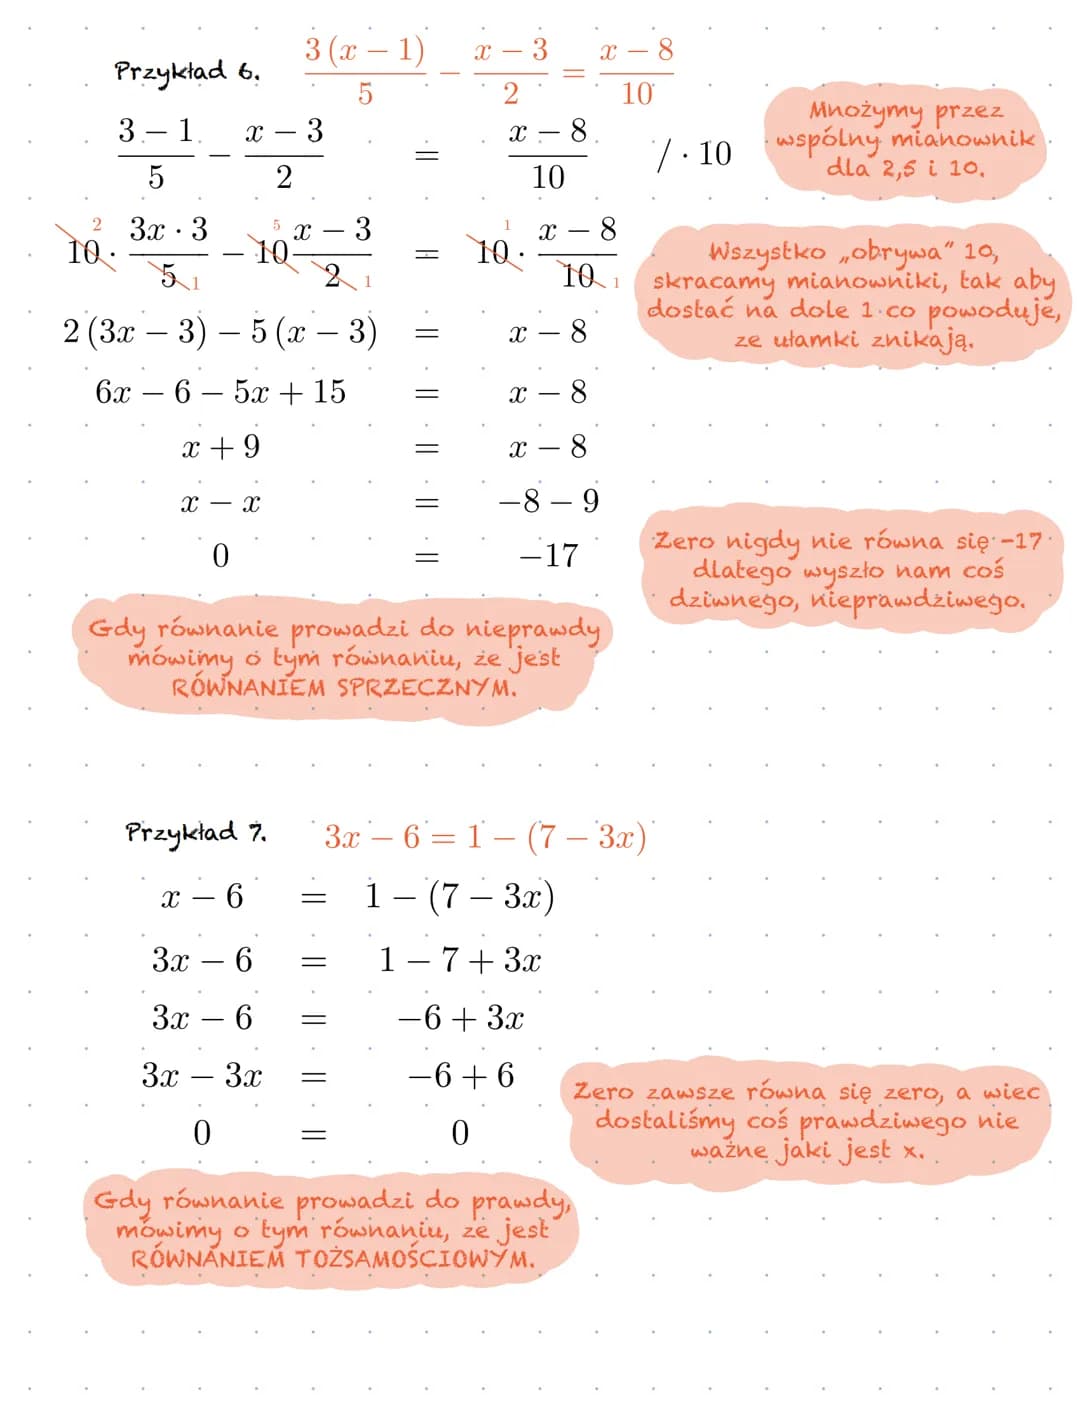 Przykład 6. 3(x − 1)/5 − (x − 3)/2 = (x − 8)/10
(3 − 1)/5 − (x − 3)/2 = (x − 8)/10 / · 10
Mnożymy przez
wspólny mianownik
dla 2,5 i 10.
2 10 · (3x · 3)/5 1 − 5 10 (x − 3)/2 1 = 1 10 · (x − 8)/10 1
Wszystko „obrywa” 10,
skracamy mianowniki, tak aby
dostać na dole 1 co powoduje,
ze ułamki znikają.
2(3x − 3) − 5(x − 3) = x − 8
6x − 6 − 5x + 15 = x − 8
x + 9 = x − 8
x − x = −8 − 9
0 = −17
Zero nigdy nie równa się -17
dlatego wyszło nam coś
dziwnego, nieprawdziwego.
Gdy równanie prowadzi do nieprawdy
mówimy o tym równaniu, ze jest
RÓWNANIEM SPRZECZNYM.
Przykład 7. 3x − 6 = 1 − (7 − 3x)
x − 6 = 1 − (7 − 3x)
3x − 6 = 1 − 7 + 3x
3x − 6 = −6 + 3x
3x − 3x = −6 + 6
0 = 0
Zero zawsze równa się zero, a wiec
dostaliśmy coś prawdziwego nie
ważne jaki jest x.
Gdy równanie prowadzi do prawdy,
mówimy o tym równaniu, ze jest
RÓWNANIEM TOŻSAMOŚCIOWYM.